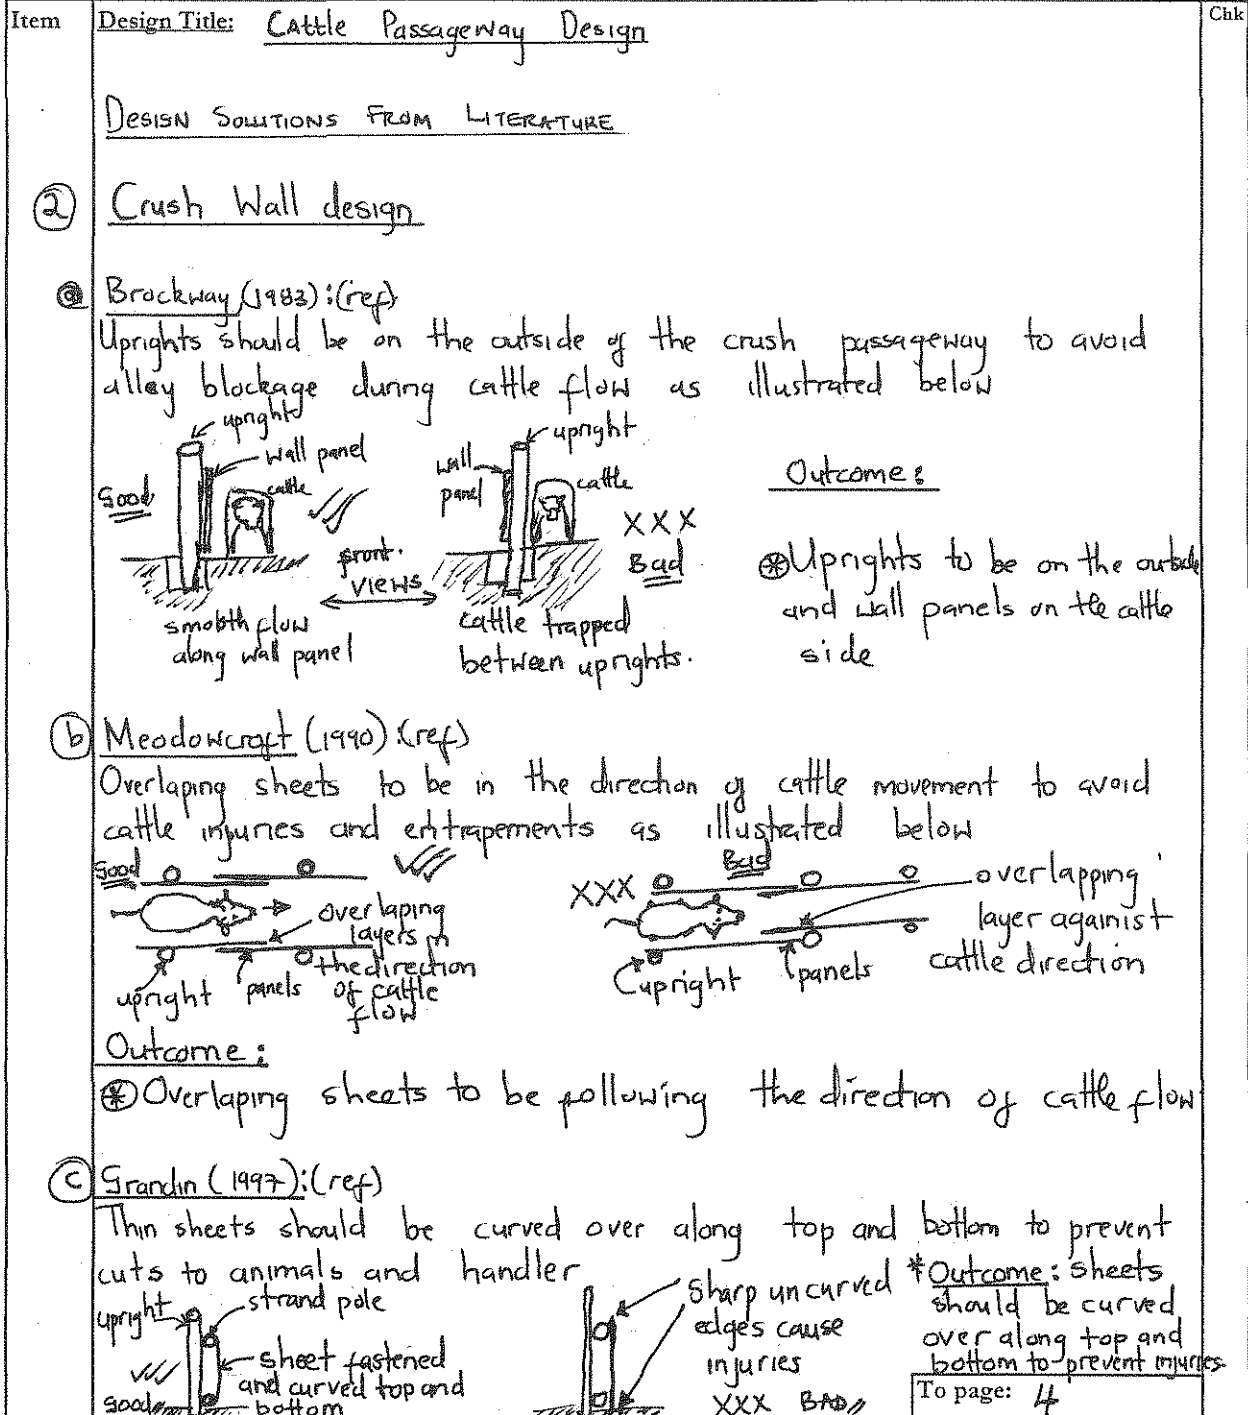 Item Design Title: Cattle Passageway Design Chk
DESIGN SOLUTIONS FROM LITERATURE
2 Crush Wall design
a Brockway (1983):(ref)
Uprights should be on the outside of the crush passageway to avoid
alley blockage during cattle flow as illustrated below
upright
wall panel
cattle
Good
smooth flow
along wall panel
front.
views
upright
wall
panel
cattle
XXX
Bad
cattle trapped
between uprights.
Outcome:
⊛ Uprights to be on the outside
and wall panels on the cattle
side
b Meadowcraft (1990):(ref)
Overlaping sheets to be in the direction of cattle movement to avoid
cattle injuries and entrapements as illustrated below
Good
overlaping
layers in
the direction
of cattle
flow
upright panels
Bad
XXX
overlapping
layer against
cattle direction
upright panels
Outcome:
⊛ Overlaping sheets to be following the direction of cattle flow
c Grandin (1997):(ref)
Thin sheets should be curved over along top and bottom to prevent
cuts to animals and handler
upright
strand pole
sheet fastened
and curved top and
bottom
Good
sharp uncurved
edges cause
injuries
XXX BAD
* Outcome: sheets
should be curved
over along top and
bottom to prevent injuries.
To page: 4